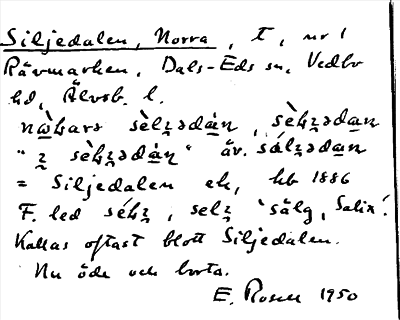 Siljedalen, Norra, t, nr 1
Rävmarken, Dals-Eds sn, Vedbo
hd, Älvsb. l.
sèlʒədàn, sèlʒədan
" sèlʒədàn" äv. sálʒədan
= Siljedalen ek, kb 1886
F. led sélʒ, selʒ 'sälg, Salix'.
Kallas oftast blott Siljedalen.
Nu öde och borta.
E. Rosell 1950